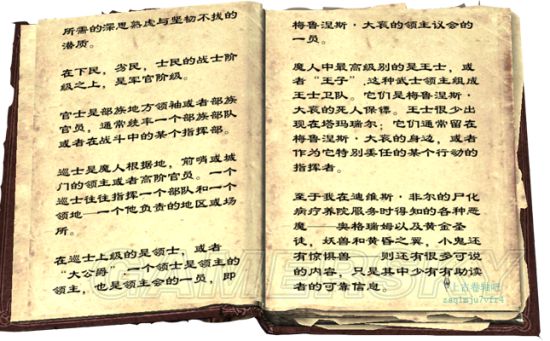 所需的深思熟虑与坚韧不拔的
潜质。
在下民，劣民，士民的战士阶
级之上，是军官阶级。
官士是部族地方领袖或者部族
官员，通常统率一个部族部队
或者在战斗中的某个指挥部。
巡士是魔人根据地，前哨或城
门的领主或者高阶官员。一个
巡士往往指挥一个部队和一个
领地——一个他负责的地区或场
所。
在巡士上级的是领士，或者
“大公爵”一个领士是领主的
领主，也是领主会的一员，即
梅鲁涅斯·大衮的领主议会的
一员。
魔人中最高级别的是王士，或
者“王子”这种武士领主组成
王士卫队。它们是梅鲁涅斯·
大衮的死人保镖。王士很少出
现在塔玛瑞尔；它们通常留在
梅鲁涅斯·大衮的身边，或者
作为它特别委任的某个行动的
指挥者。
至于我在迪维斯·非尔的尸化
病疗养院服务时得知的各种恶
魔——奥格瑞姆以及黄金圣
徒，妖兽和黄昏之翼，小鬼还
有惊惧兽——则还有很多可说
的内容，只是其中少有有助读
者的可靠信息。
上古卷轴吧
zaq1mju7vfr4
GAMERSKY